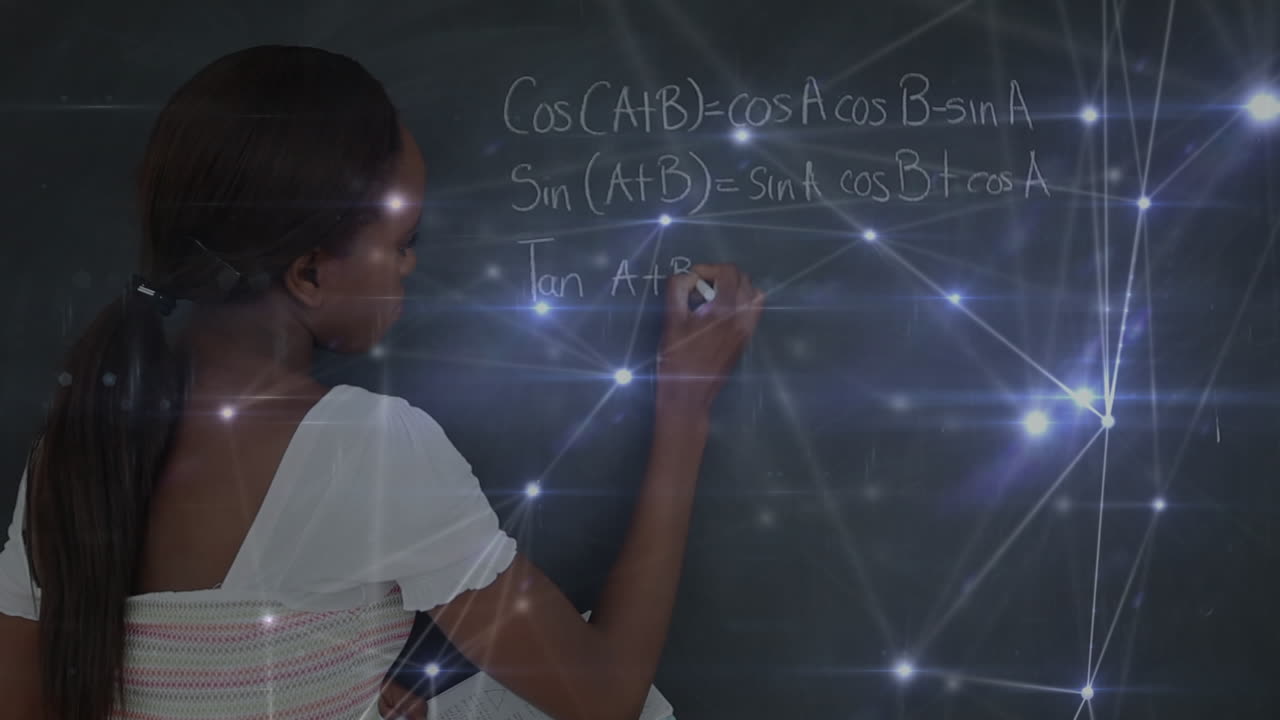 Cos(A+B)=cosA cosB-sinA
Sin(A+B)=sinA cosB+cosA
Tan A+B